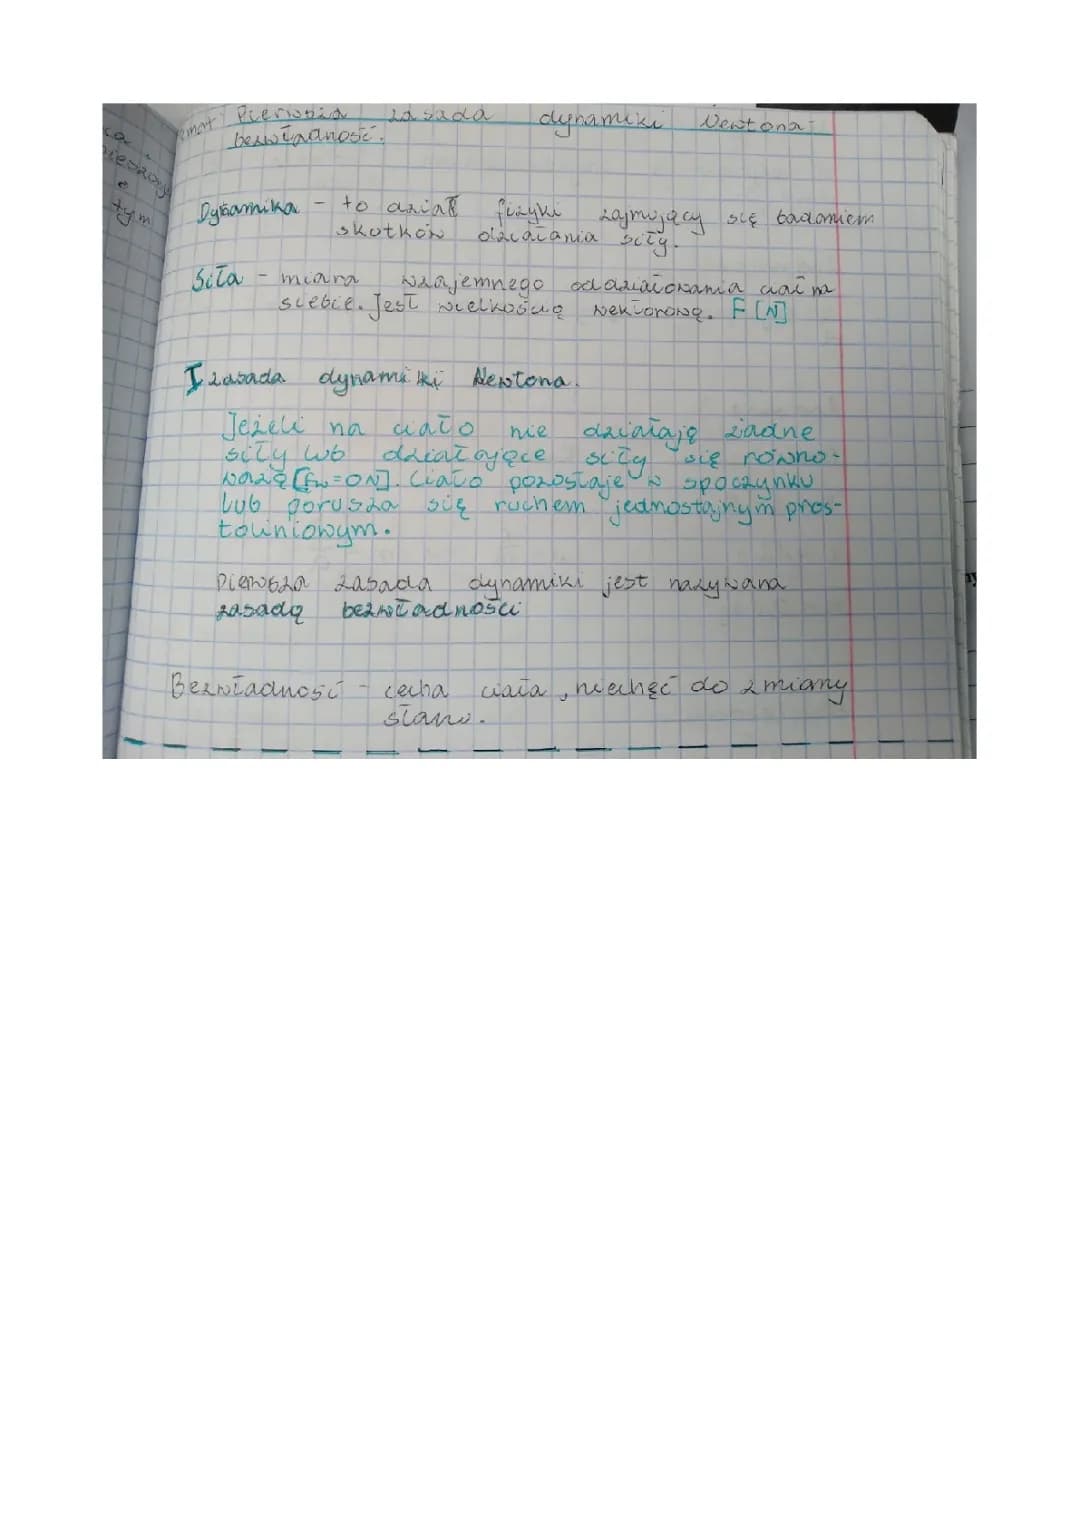 Temat: Pierwsza zasada dynamiki Newtona -
bezwładność.
tym
Dynamika - to dział fizyki zajmujący się badaniem
skutków działania siły.
Siła - miara wzajemnego oddziaływania ciał na
siebie. Jest wielkością wektorową. F [N]
I zasada dynamiki Newtona.
Jeżeli na ciało nie działają żadne
siły lub działające siły się równo-
ważą [Fw=0N]. Ciało pozostaje w spoczynku
lub porusza się ruchem jednostajnym pros-
toliniowym.
Pierwsza zasada dynamiki jest nazywana
zasadą bezwładności
Bezwładność - cecha ciała, niechęć do zmiany
stanu.